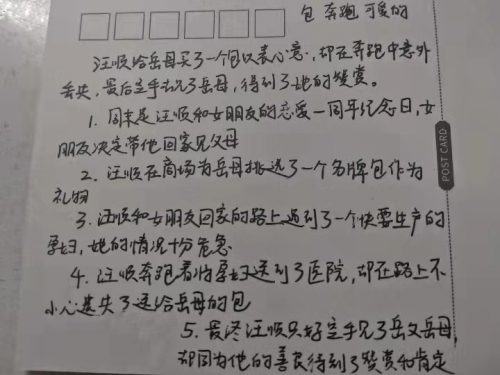 包 奔跑 可爱的
汪顺给岳母买了一个包以表心意,却在奔跑中意外
丢失,最后空手见了岳母,得到了她的赞赏。
1. 周末是汪顺和女朋友的恋爱一周年纪念日,女
朋友决定带他回家见父母
2. 汪顺在商场为岳母挑选了一个名牌包作为
礼物
3. 汪顺和女朋友回家的路上遇到了一个快要生产的
孕妇,她的情况十分危急
4. 汪顺奔跑着将孕妇送到了医院,却在路上不
小心遗失了送给岳母的包
5. 最终汪顺只好空手见了岳父岳母,
却因为他的善良得到了赞赏和肯定
POST CARD